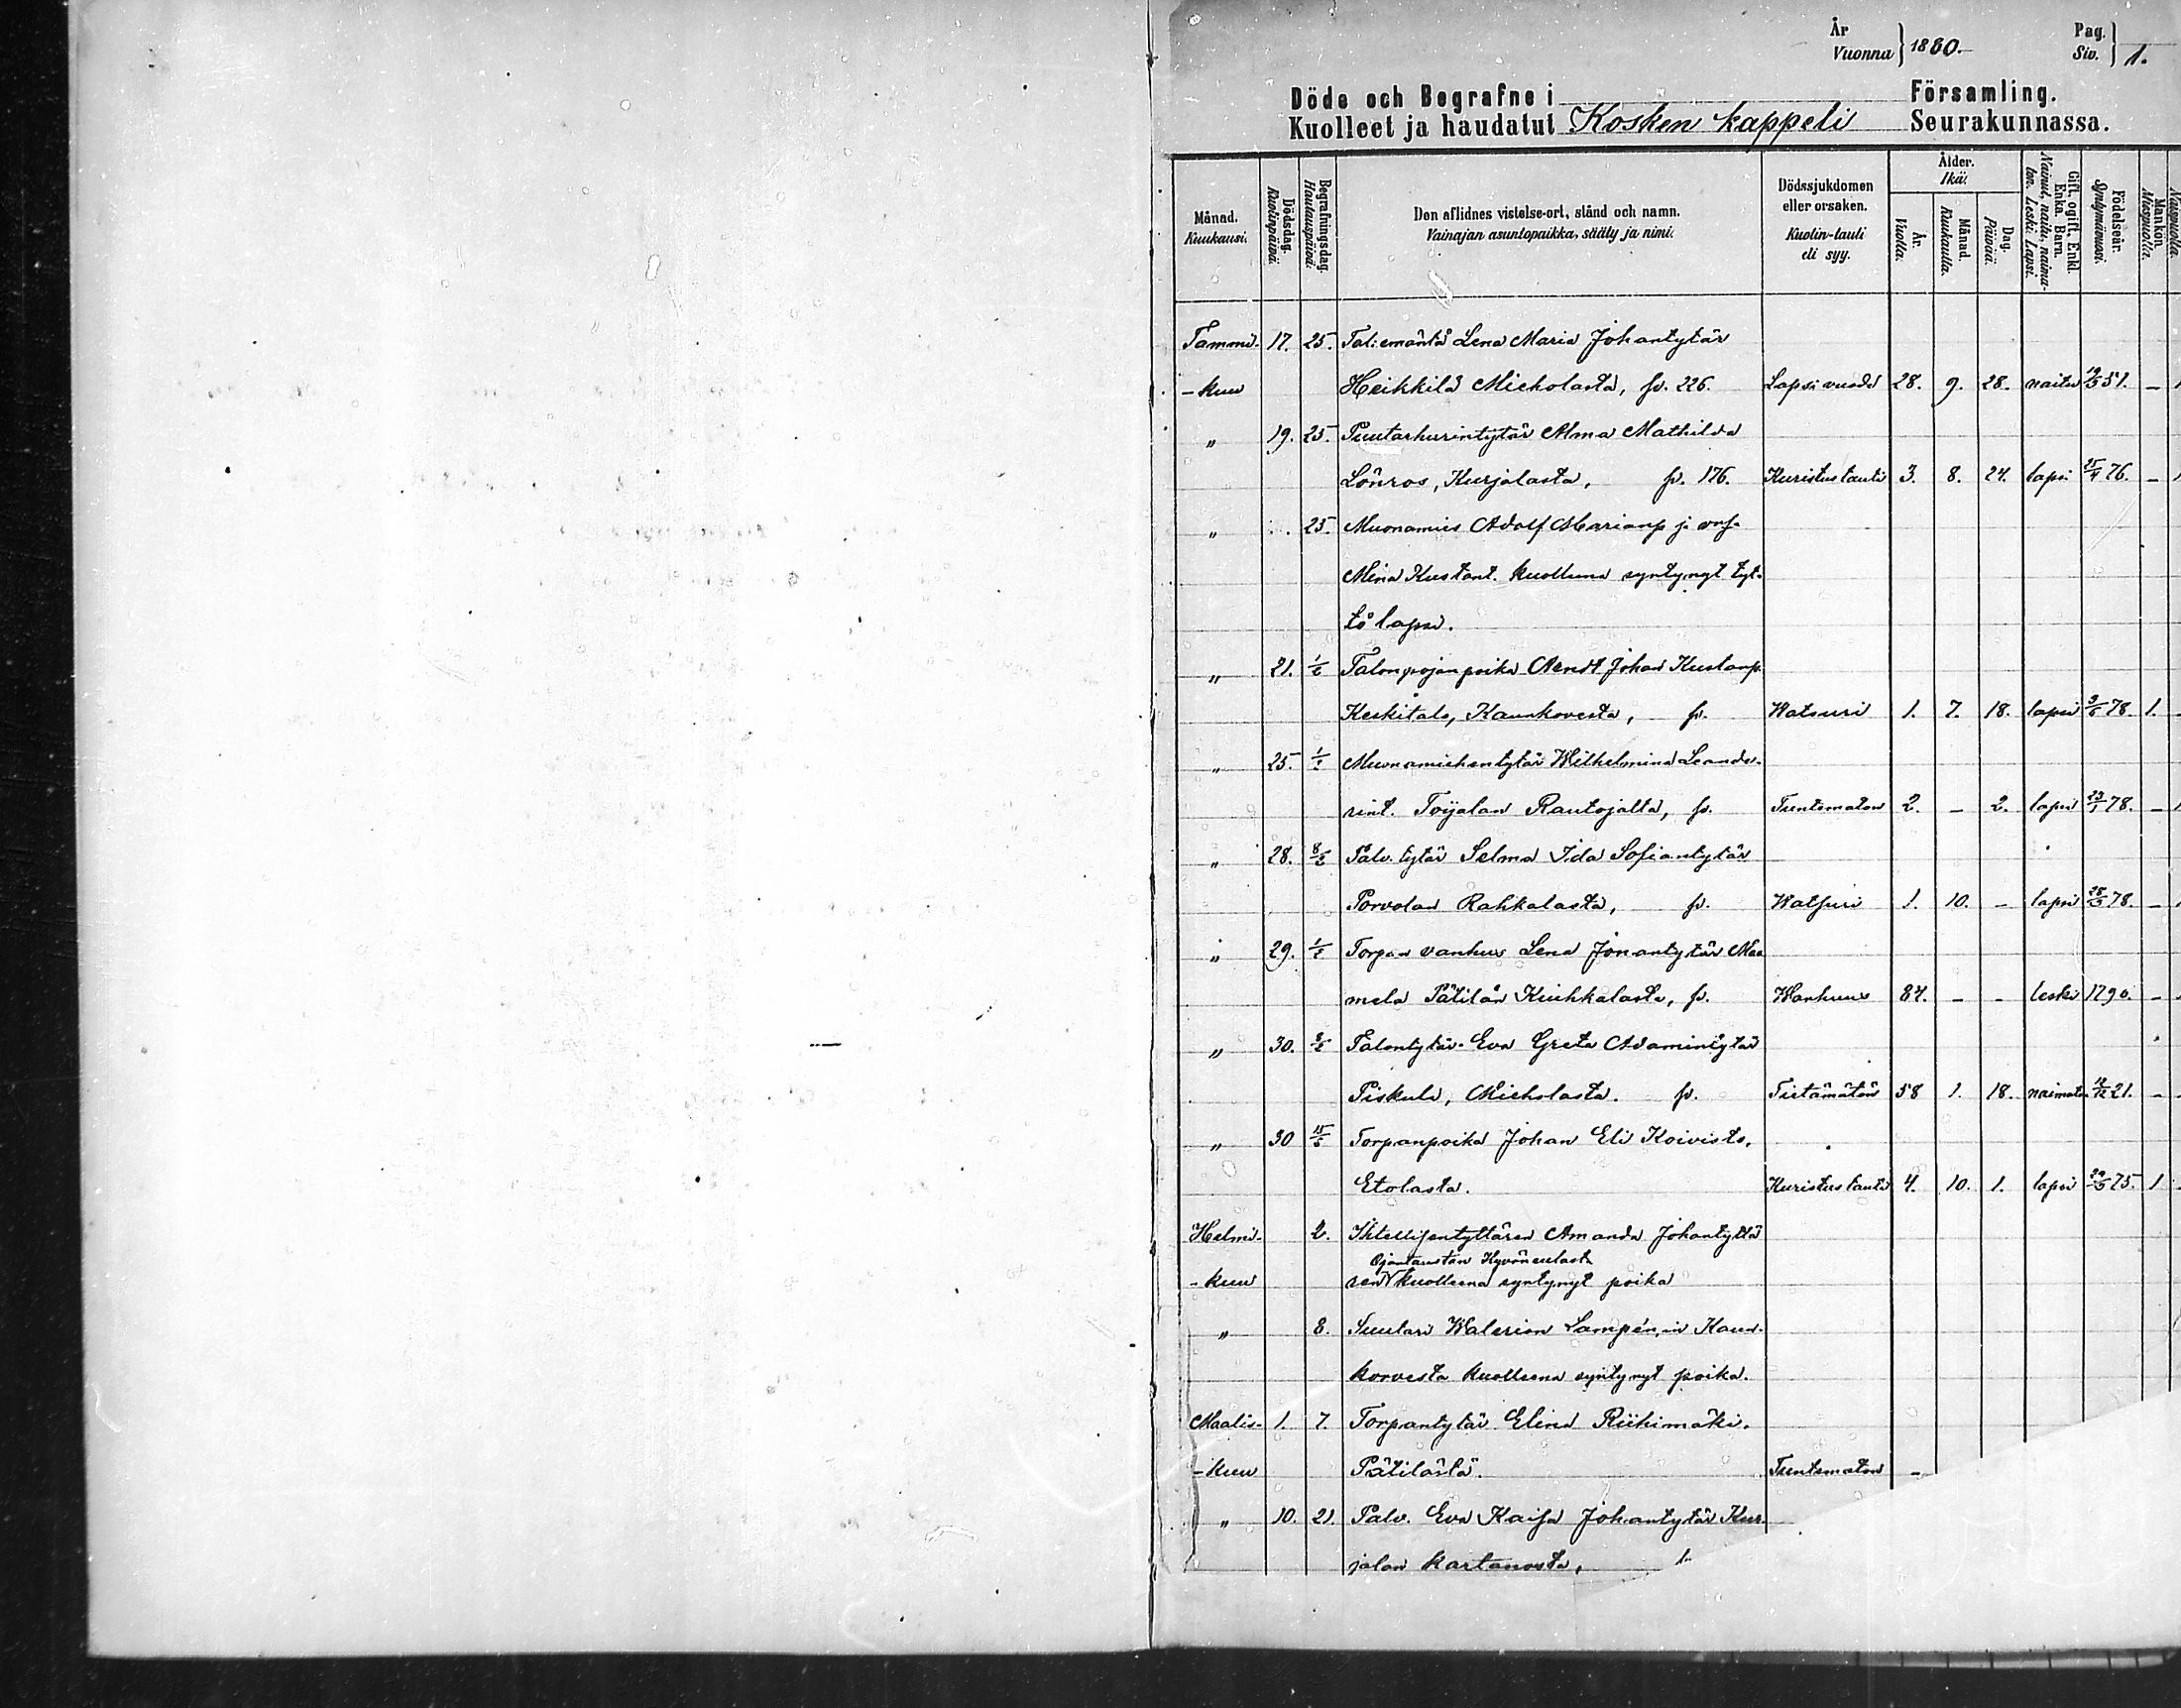 År Vuonna } 1880. Pag. Siv. } 1.
Döde och Begrafne i Församling.
Kuolleet ja haudatut Kosken kappeli Seurakunnassa.
Månad. Kuukausi.
Dödsdag. Kuolinpäivä.
Begrafningsdag. Hautauspäivä.
Den aflidnes vistelse-ort, stånd och namn.
Vainajan asuntopaikka, sääty ja nimi.
Dödssjukdomen
eller orsaken.
Kuolin-tauti
eli syy.
Ålder.
Ikä.
År. Vuotta.
Månad. Kuukautta.
Dag. Päivää.
Gift, ogift, Enkl. Enka. Barn.
Nainut, naitu, naimaton. Leski. Lapsi.
Födelseår. Syntymävuosi.
Mankön. Miespuolia.
Tammi- 17. 25. Tal: emäntä Lena Maria Johantytär
-kuu Heikkilä Mieholasta, fv. 226. Lapsivuode 28. 9. 28. naitu 19/3 51. -
" 19. 25. Puutarhurintytär Alma Mathilda
Lönros, Kurjalasta, fv. 176. Kuristustauti 3. 8. 24. lapsi 25/4 76. -
" 25. Muonamies Adolf Marianp ja
Mina Kustant. kuolluna syntynyt tyt-
tö lapsi.
" 21. 1/2 Talonpojanpoika Johan Kustanp.
Keskitalo, Kaunkovesta, fv. Watsuri 1. 7. 18. lapsi 3/6 78. 1.
" 25. 1/2 Muonamiehentytär Wilhelmina Leande-
rint. Toijalan Rautojalta, fv. Tuntematon 2. - 2. lapsi 23/1 78. -
" 28. 8/2 Palv. tytär Selma Ida Sofiantytär
Porvolan Rahkalasta, fv. Watsuri 1. 10. - lapsi 28/3 78. -
" 29. 1/2 Torpan vanhus Lena Jonantytär Maa
mela Pätilän Kiuhkalasta, fv. Wanhuus 84. - - leski 1796. -
" 30. 8/2 Talontytär Eva Greta Adamintytär
Piskula, Mieholasta. fv. Tietämätön 58 1. 18. naimato 12/12 21. -
" 30 15/2 Torpanpoika Johan Eli Koivisto,
Etolasta. Kuristustauti 4. 10. 1. lapsi 29/3 75. 1
Helmi- 2. Itsellisentyttären Amanda Johantyttä
Ojantaustan Hyvöneulasta
-kuu ren kuolleena syntynyt poika
" 8. Suutari Walerian Lampén,in Kaun-
korvesta kuolleena syntynyt poika.
Maalis- 1. 7. Torpantytär Elina Riihimäki,
-kuu Pätilästä. Tuntematon -
" 10. 21. Palv. Eva Kaisa Johantytär Kur-
jalan kartanosta,